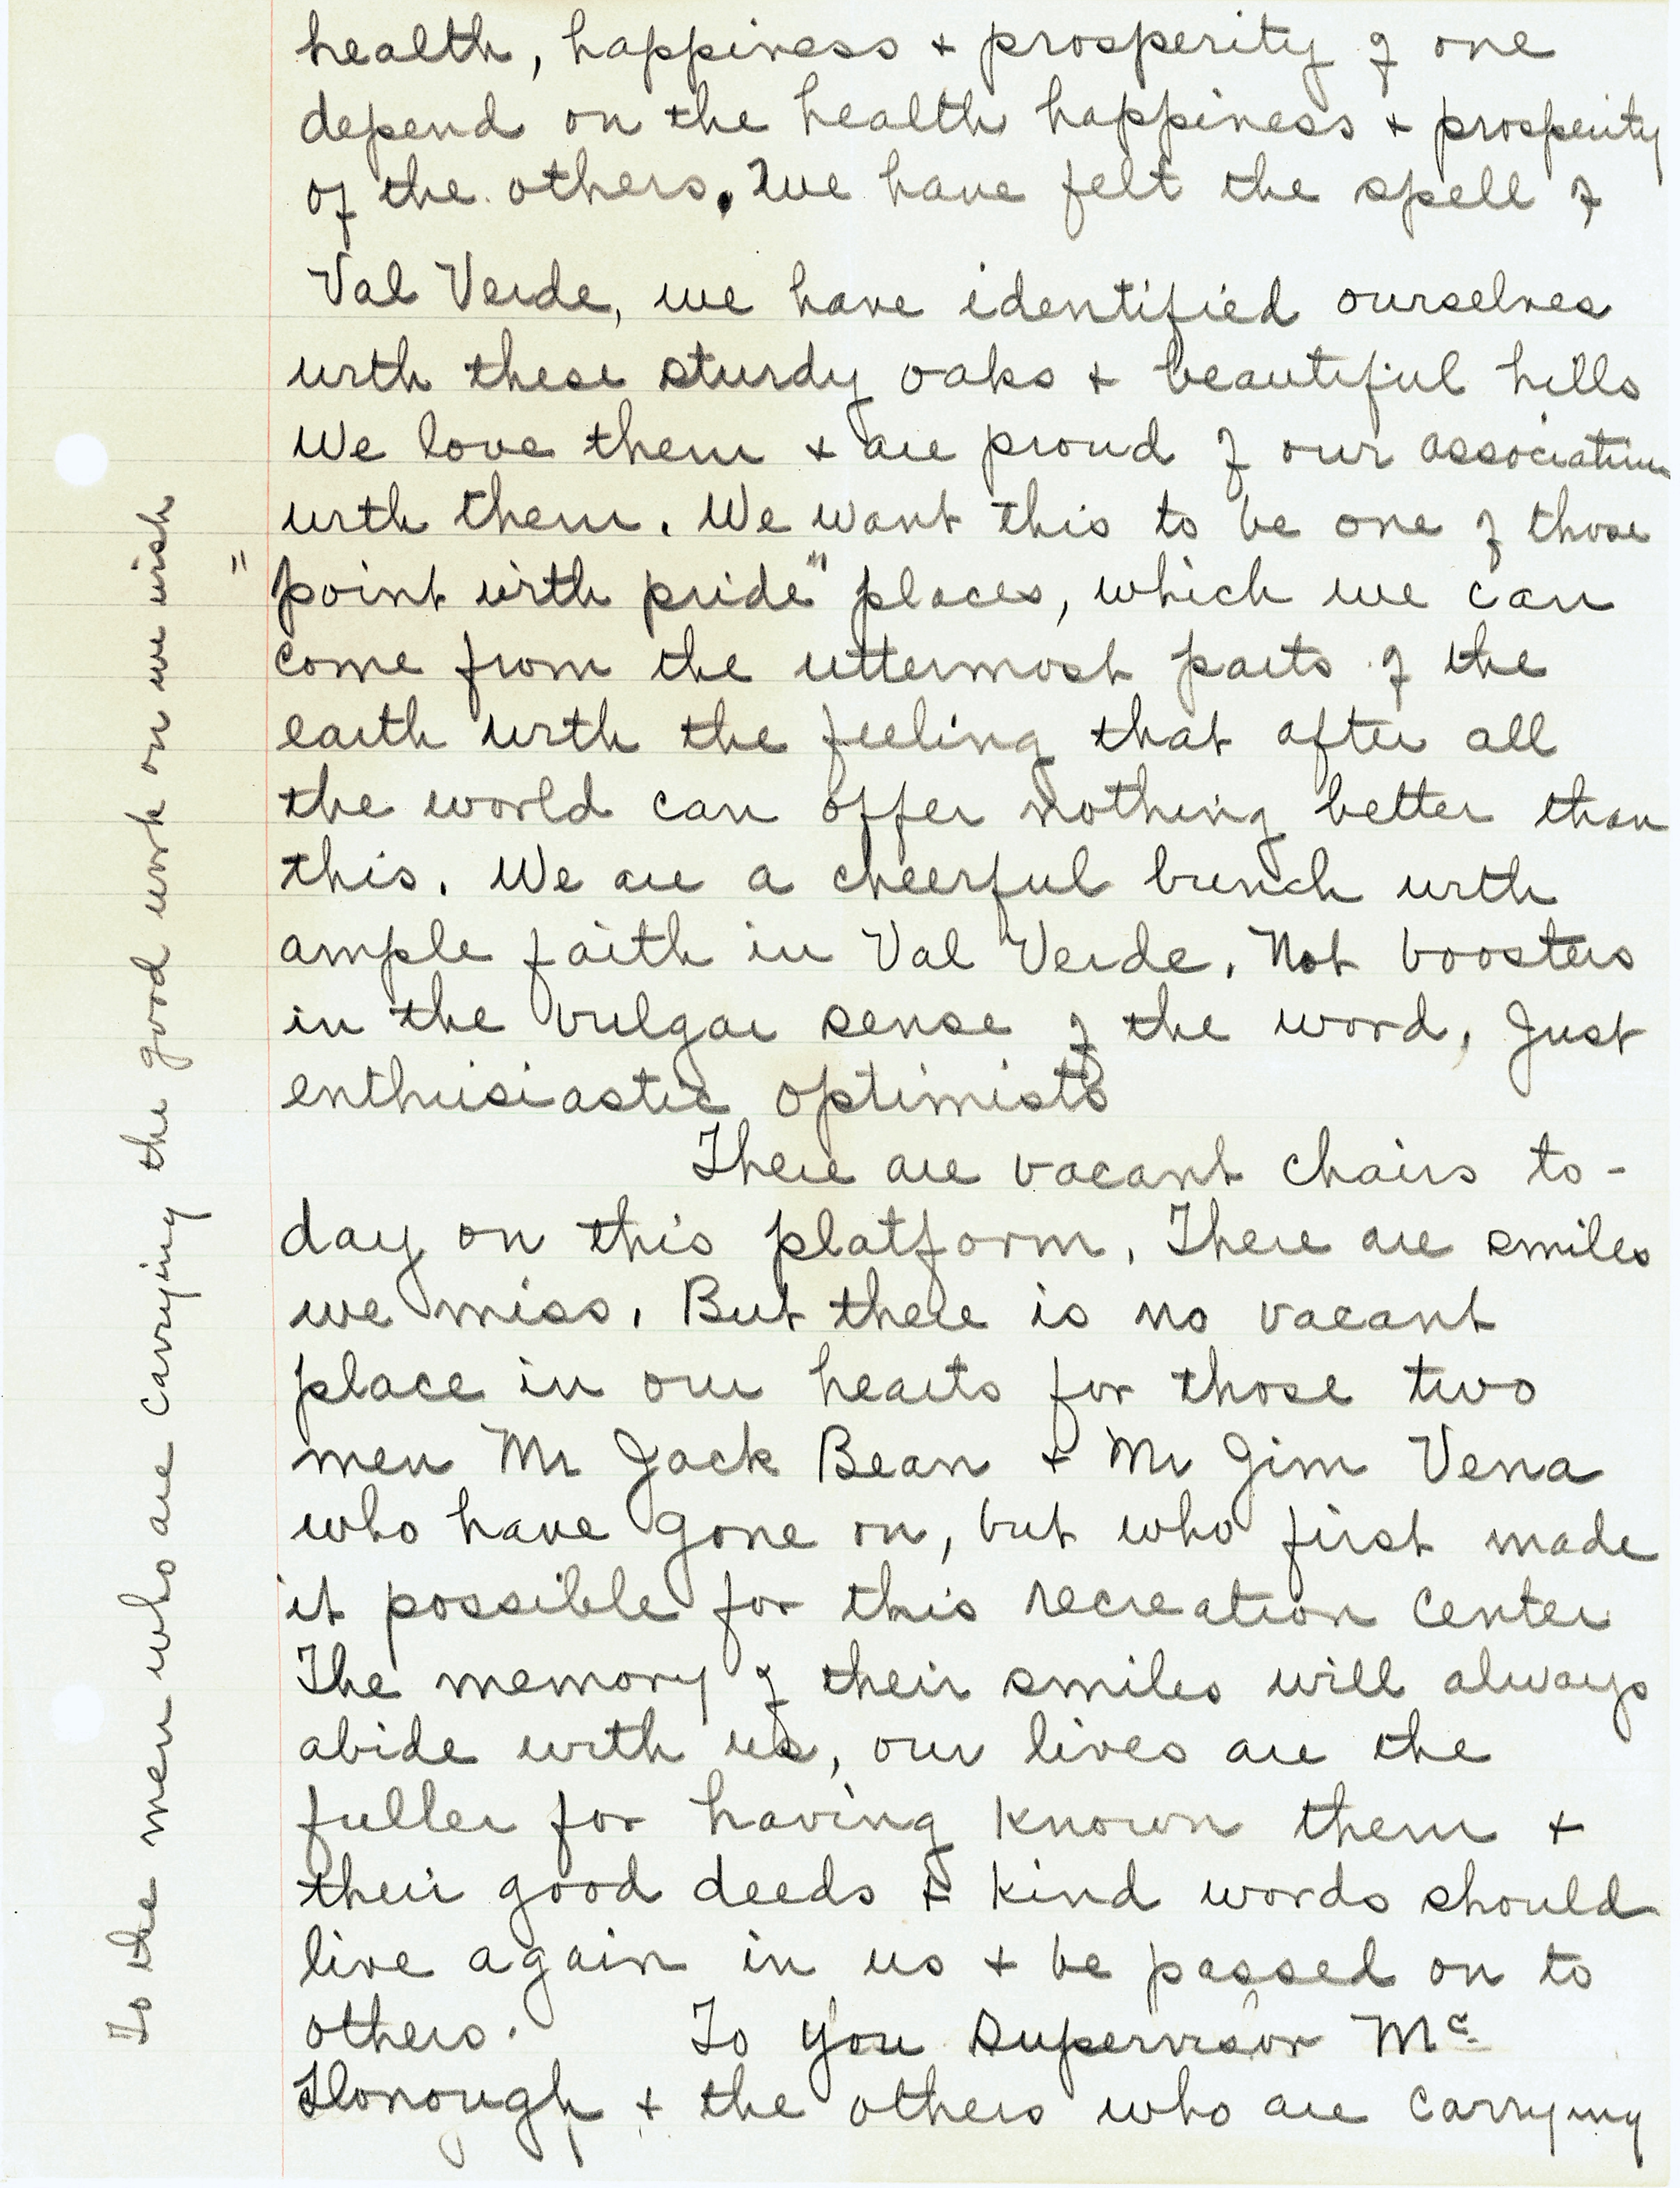 health, happiness + prosperity of one
depend on the health happiness + prosperity
of the others. We have felt the spell of
Val Verde, we have identified ourselves
with these sturdy oaks + beautiful hills
We love them + are proud of our association
with them. We want this to be one of those
"point with pride" places, which we can
come from the uttermost parts of the
earth with the feeling that after all
the world can offer nothing better than
this. We are a cheerful bunch with
ample faith in Val Verde. Not boosters
in the vulgar sense of the word, Just
enthusiastic optimists
There are vacant chairs to-
day on this platform. There are smiles
we miss. But there is no vacant
place in our hearts for those two
men Mr Jack Bean + Mr Jim Vena
who have gone on, but who first made
it possible for this recreation center
The memory of their smiles will always
abide with us, our lives are the
fuller for having known them +
their good deeds + kind words should
live again in us + be passed on to
others. To you Supervisor Mc
Donough + the others who are carrying
To the men who are carrying the good work on we wish